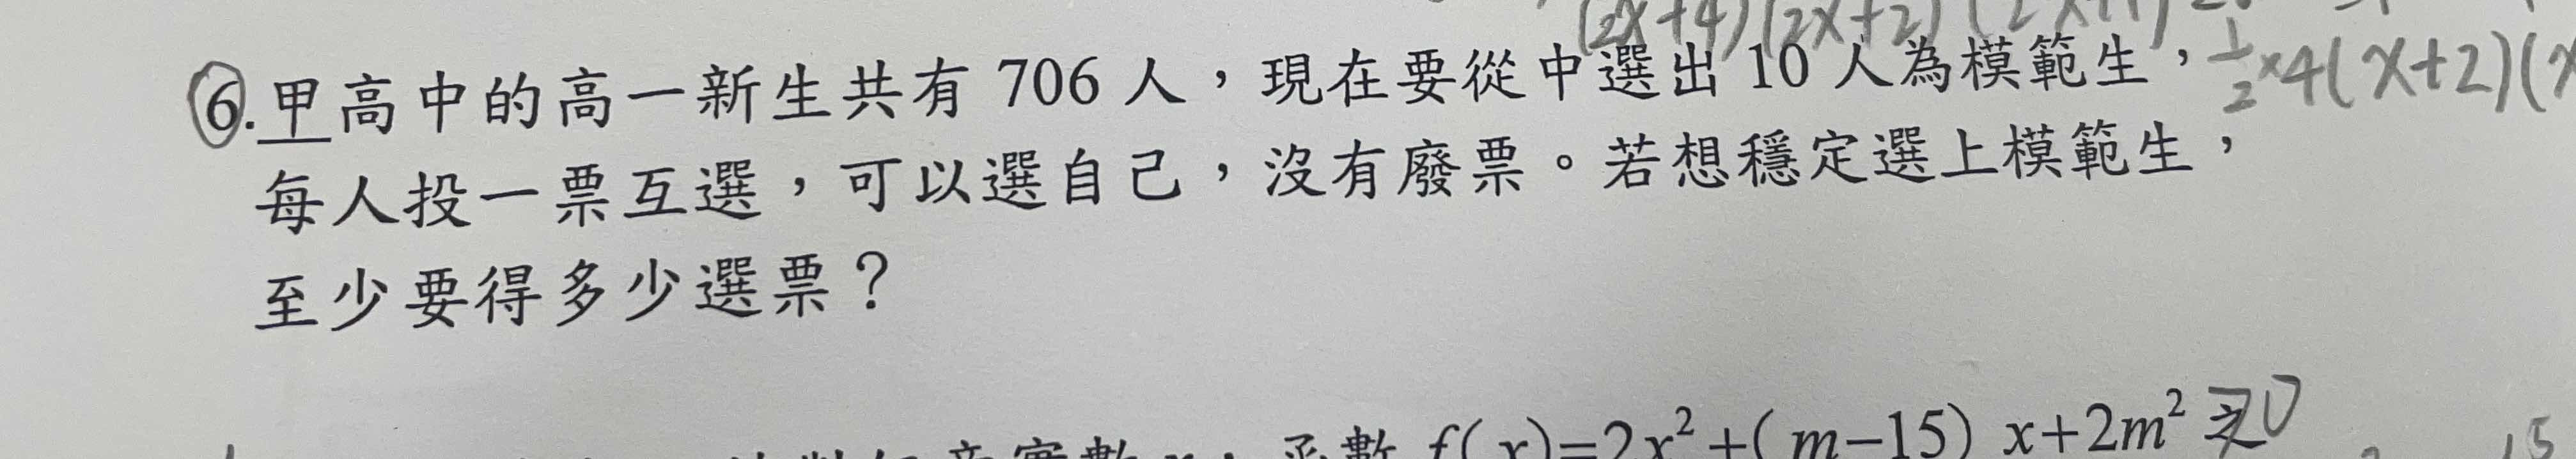 (2x+4)(2x+2)
⑥.甲高中的高一新生共有 706 人，現在要從中選出 10 人為模範生，
½×4(x+2)(x
每人投一票互選，可以選自己，沒有廢票。若想穩定選上模範生，
至少要得多少選票？
函數 f(x)=2x²+(m−15) x+2m²
15